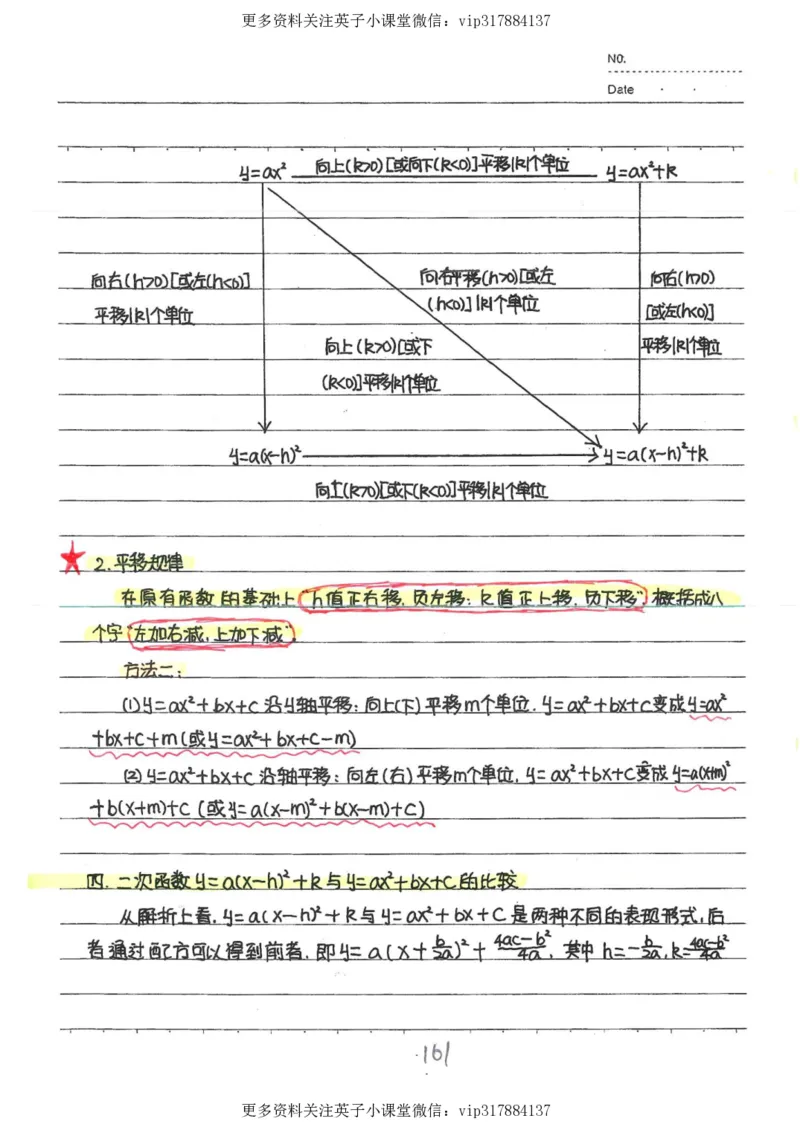 更多资料关注英子小课堂微信：vip317884137
NO.
Date
y=ax² 向上(k>0)[或向下(k<0)]平移|k|个单位 y=ax²+k
向右(h>0)[或左(h<0)]
平移|k|个单位
向右平移(h>0)[或左
(h<0)]|k|个单位
向右(h>0)
[或左(h<0)]
平移|k|单位
向上(k>0)[或下
(k<0)]平移|k|个单位
y=a(x-h)² y=a(x-h)²+k
向上(k>0)[或下(k<0)]平移|k|个单位
2.平移规律
在原有函数的基础上"h值正右移,负左移;k值正上移,负下移",概括成八
个字"左加右减,上加下减".
方法二:
(1)y=ax²+bx+c沿y轴平移:向上(下)平移m个单位.y=ax²+bx+c变成y=ax²
+bx+c+m(或y=ax²+bx+c-m)
(2)y=ax²+bx+c沿轴平移:向左(右)平移m个单位,y=ax²+bx+c变成y=a(x+m)²
+b(x+m)+c(或y=a(x-m)²+b(x-m)+c)
四.二次函数y=a(x-h)²+k与y=ax²+bx+c的比较
从解析上看,y=a(x-h)²+k与y=ax²+bx+c是两种不同的表现形式,后
者通过配方可以得到前者,即y=a(x+b/2a)²+(4ac-b²)/4a,其中h=-b/2a,k=(4ac-b²)/4a
161
更多资料关注英子小课堂微信：vip317884137